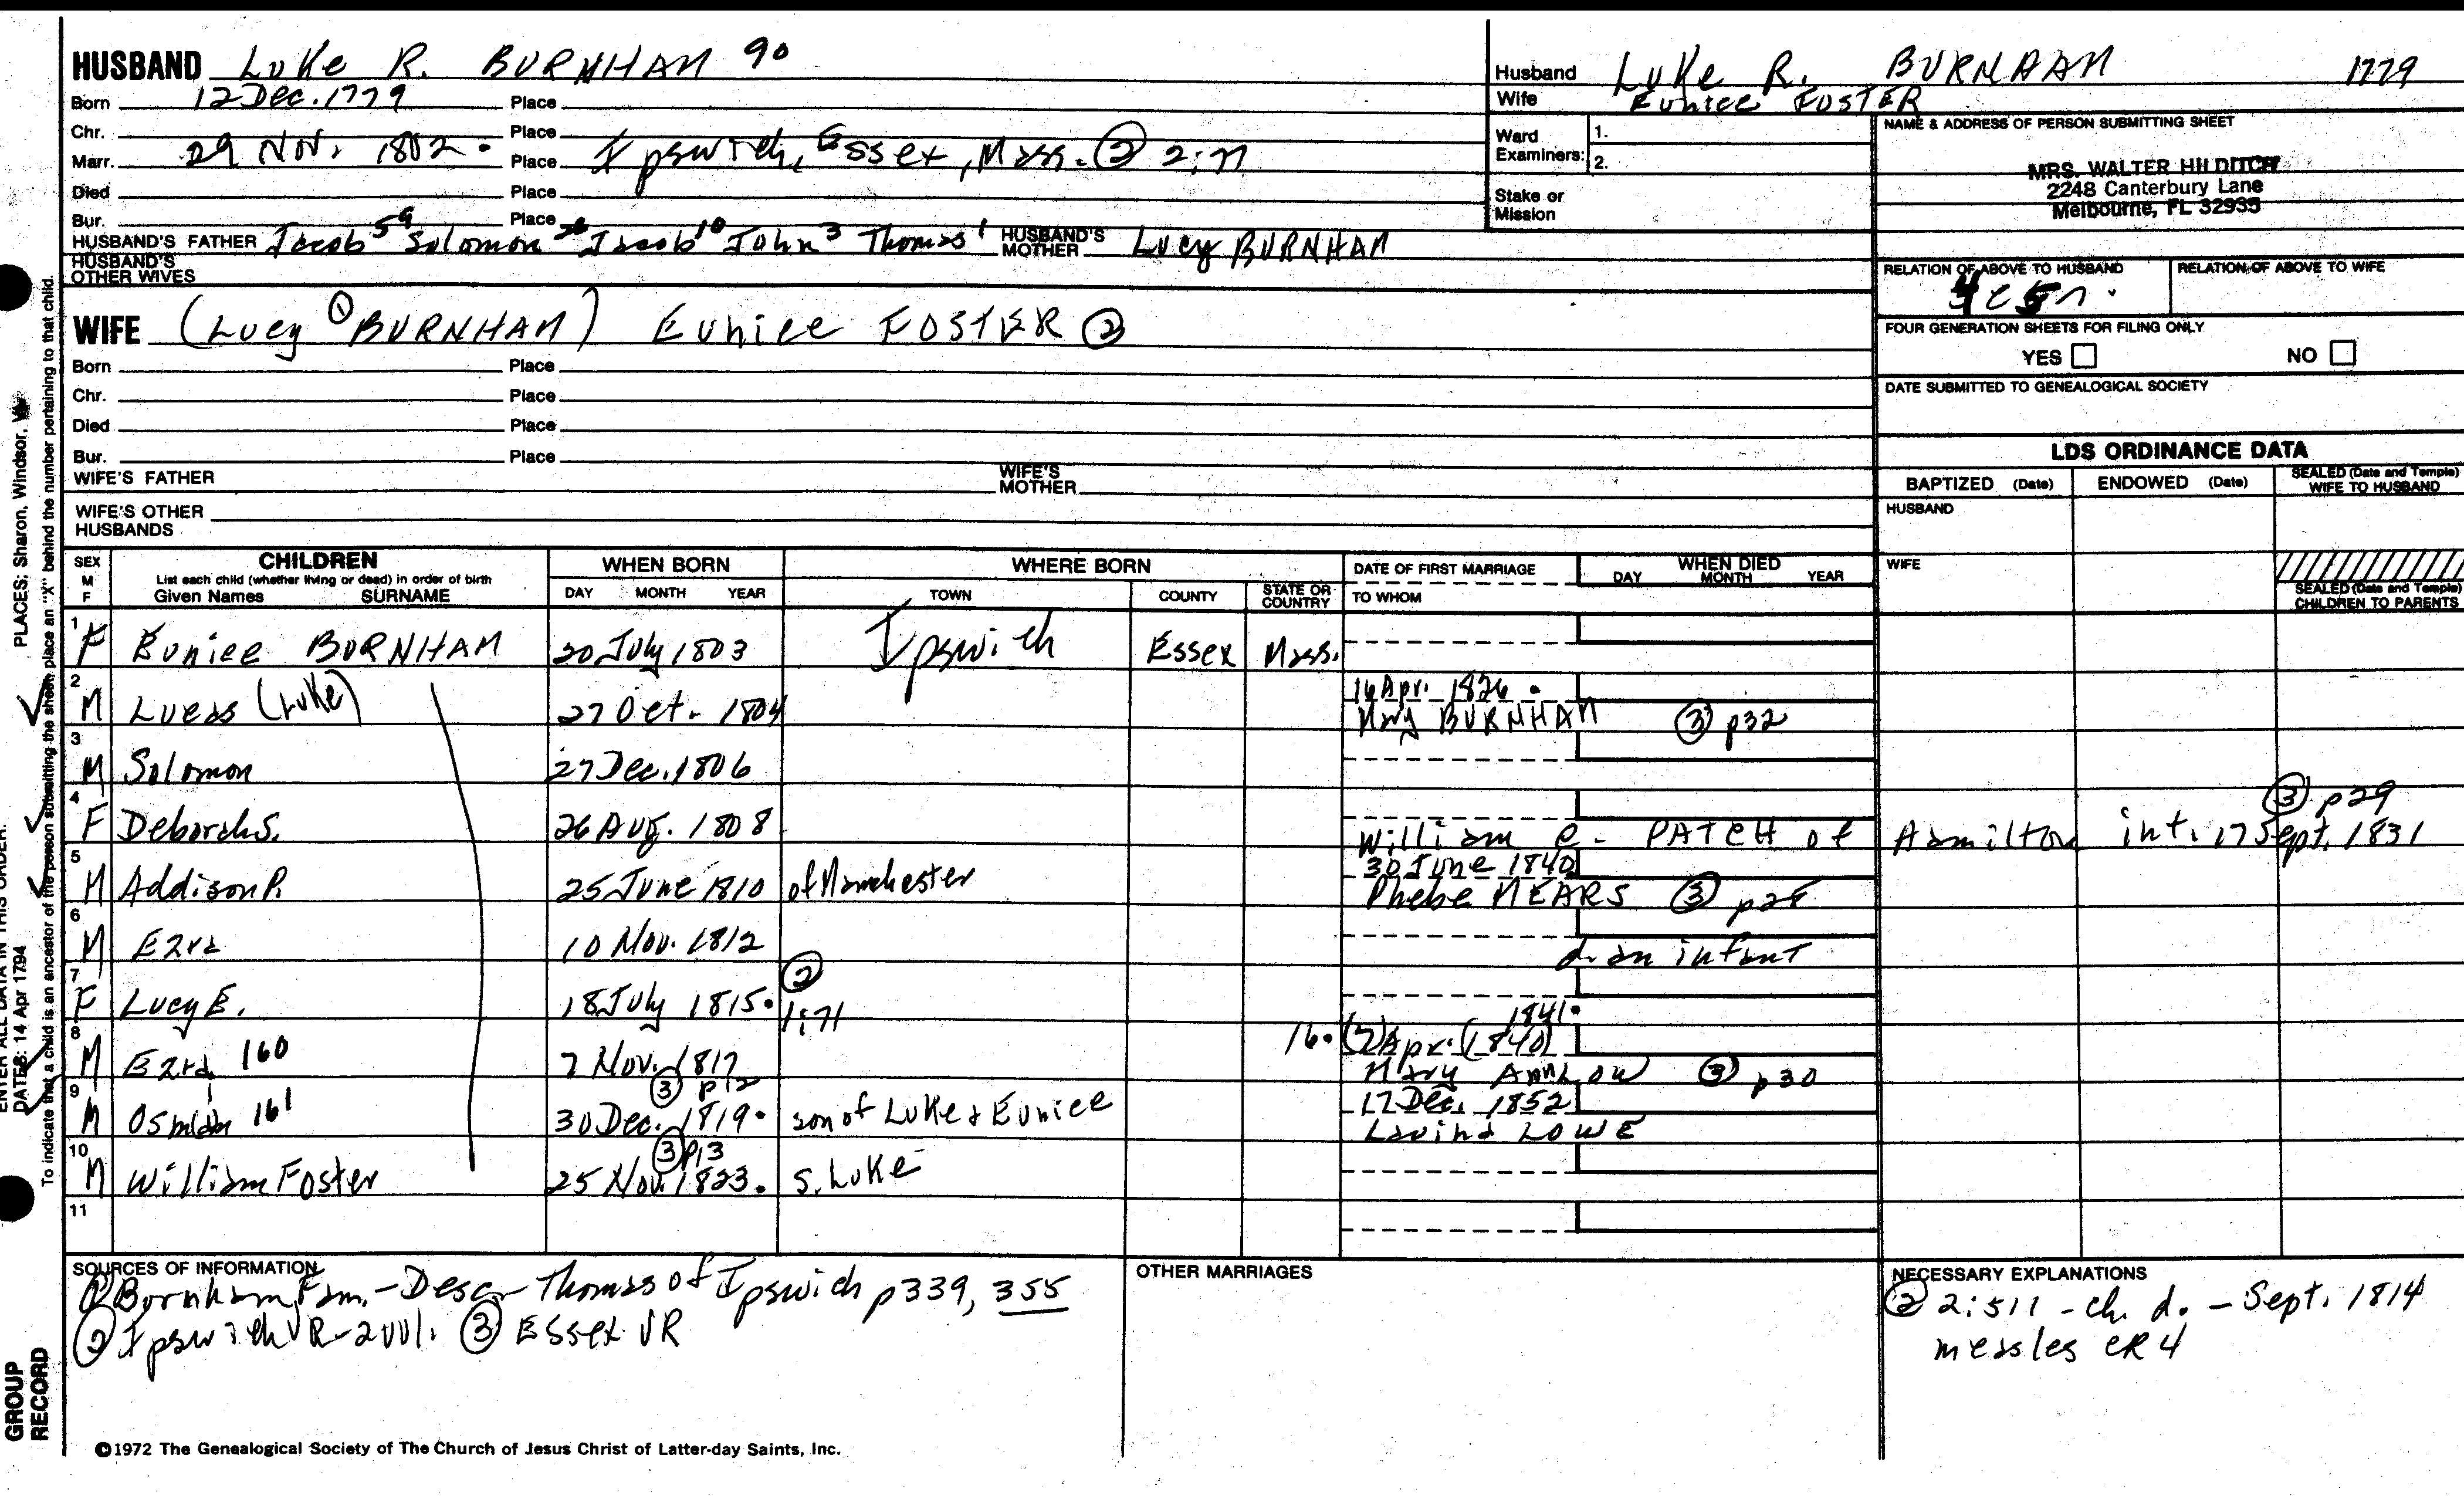 HUSBAND Luke R. BURNHAM 90
Born 12 Dec. 1779 Place
Chr. Place
Marr. 29 Nov. 1802. Place Ipswich, Essex, Mass. ② 2:77
Died Place
Bur. Place
HUSBAND'S FATHER Jacob 59 Solomon 26 Jacob 10 John 3 Thomas 1 HUSBAND'S MOTHER Lucy BURNHAM
HUSBAND'S OTHER WIVES
WIFE (Lucy ① BURNHAM) Eunice FOSTER ②
Born Place
Chr. Place
Died Place
Bur. Place
WIFE'S FATHER WIFE'S MOTHER
WIFE'S OTHER HUSBANDS
Husband Luke R. BURNHAM 1779
Wife Eunice FOSTER
Ward Examiners: 1.
2.
Stake or Mission
NAME & ADDRESS OF PERSON SUBMITTING SHEET
MRS. WALTER HILDITCH
2248 Canterbury Lane
Melbourne, FL 32935
RELATION OF ABOVE TO HUSBAND RELATION OF ABOVE TO WIFE
FOUR GENERATION SHEETS FOR FILING ONLY
YES NO
DATE SUBMITTED TO GENEALOGICAL SOCIETY
LDS ORDINANCE DATA
BAPTIZED (Date) ENDOWED (Date) SEALED (Date and Temple) WIFE TO HUSBAND
HUSBAND
WIFE
SEALED (Date and Temple) CHILDREN TO PARENTS
SEX M F CHILDREN WHEN BORN WHERE BORN DATE OF FIRST MARRIAGE WHEN DIED
List each child (whether living or dead) in order of birth
Given Names SURNAME DAY MONTH YEAR TOWN COUNTY STATE OR COUNTRY TO WHOM DAY MONTH YEAR
1 F Eunice BURNHAM 20 July 1803 Ipswich Essex Mass.
2 M Lucas (Luke) 27 Oct. 1804 16 Apr. 1826.
Mary BURNHAM ③ p32
3 M Solomon 27 Dec. 1806
4 F Deborah S. 26 Aug. 1808 ③ p29
William e. PATCH of Hamilton int. 17 Sept. 1831
5 M Addison P. 25 June 1810 of Manchester 30 June 1840
Phebe MEARS ③ p28
6 M Ezra 10 Nov. 1812 d. an infant
7 F Lucy E. 18 July 1815. ② 1:71
8 M Ezra 160 7 Nov. 1817 16. (7) Apr. (1840) 1841.
Mary Ann LOW ③ p30
9 M Osman 161 30 Dec. 1819. ③ p12 son of Luke & Eunice 17 Dec. 1852
Lavina LOWE
10 M William Foster 25 Nov. 1823. ③ p13 s. Luke
11
SOURCES OF INFORMATION
① Burnham Fam. - Desc - Thomas of Ipswich p339, 355
② Ipswich VR - 2 vol. ③ Essex VR
OTHER MARRIAGES
NECESSARY EXPLANATIONS
② 2:511 - ch. d. - Sept. 1814
measles CR4
©1972 The Genealogical Society of The Church of Jesus Christ of Latter-day Saints, Inc.
ENTER ALL DATA IN THIS ORDER:
DATES: 14 Apr 1794
PLACES: Sharon, Windsor,
To indicate that a child is an ancestor of the person submitting the sheet, place an "X" behind the number pertaining to that child.
GROUP
RECORD